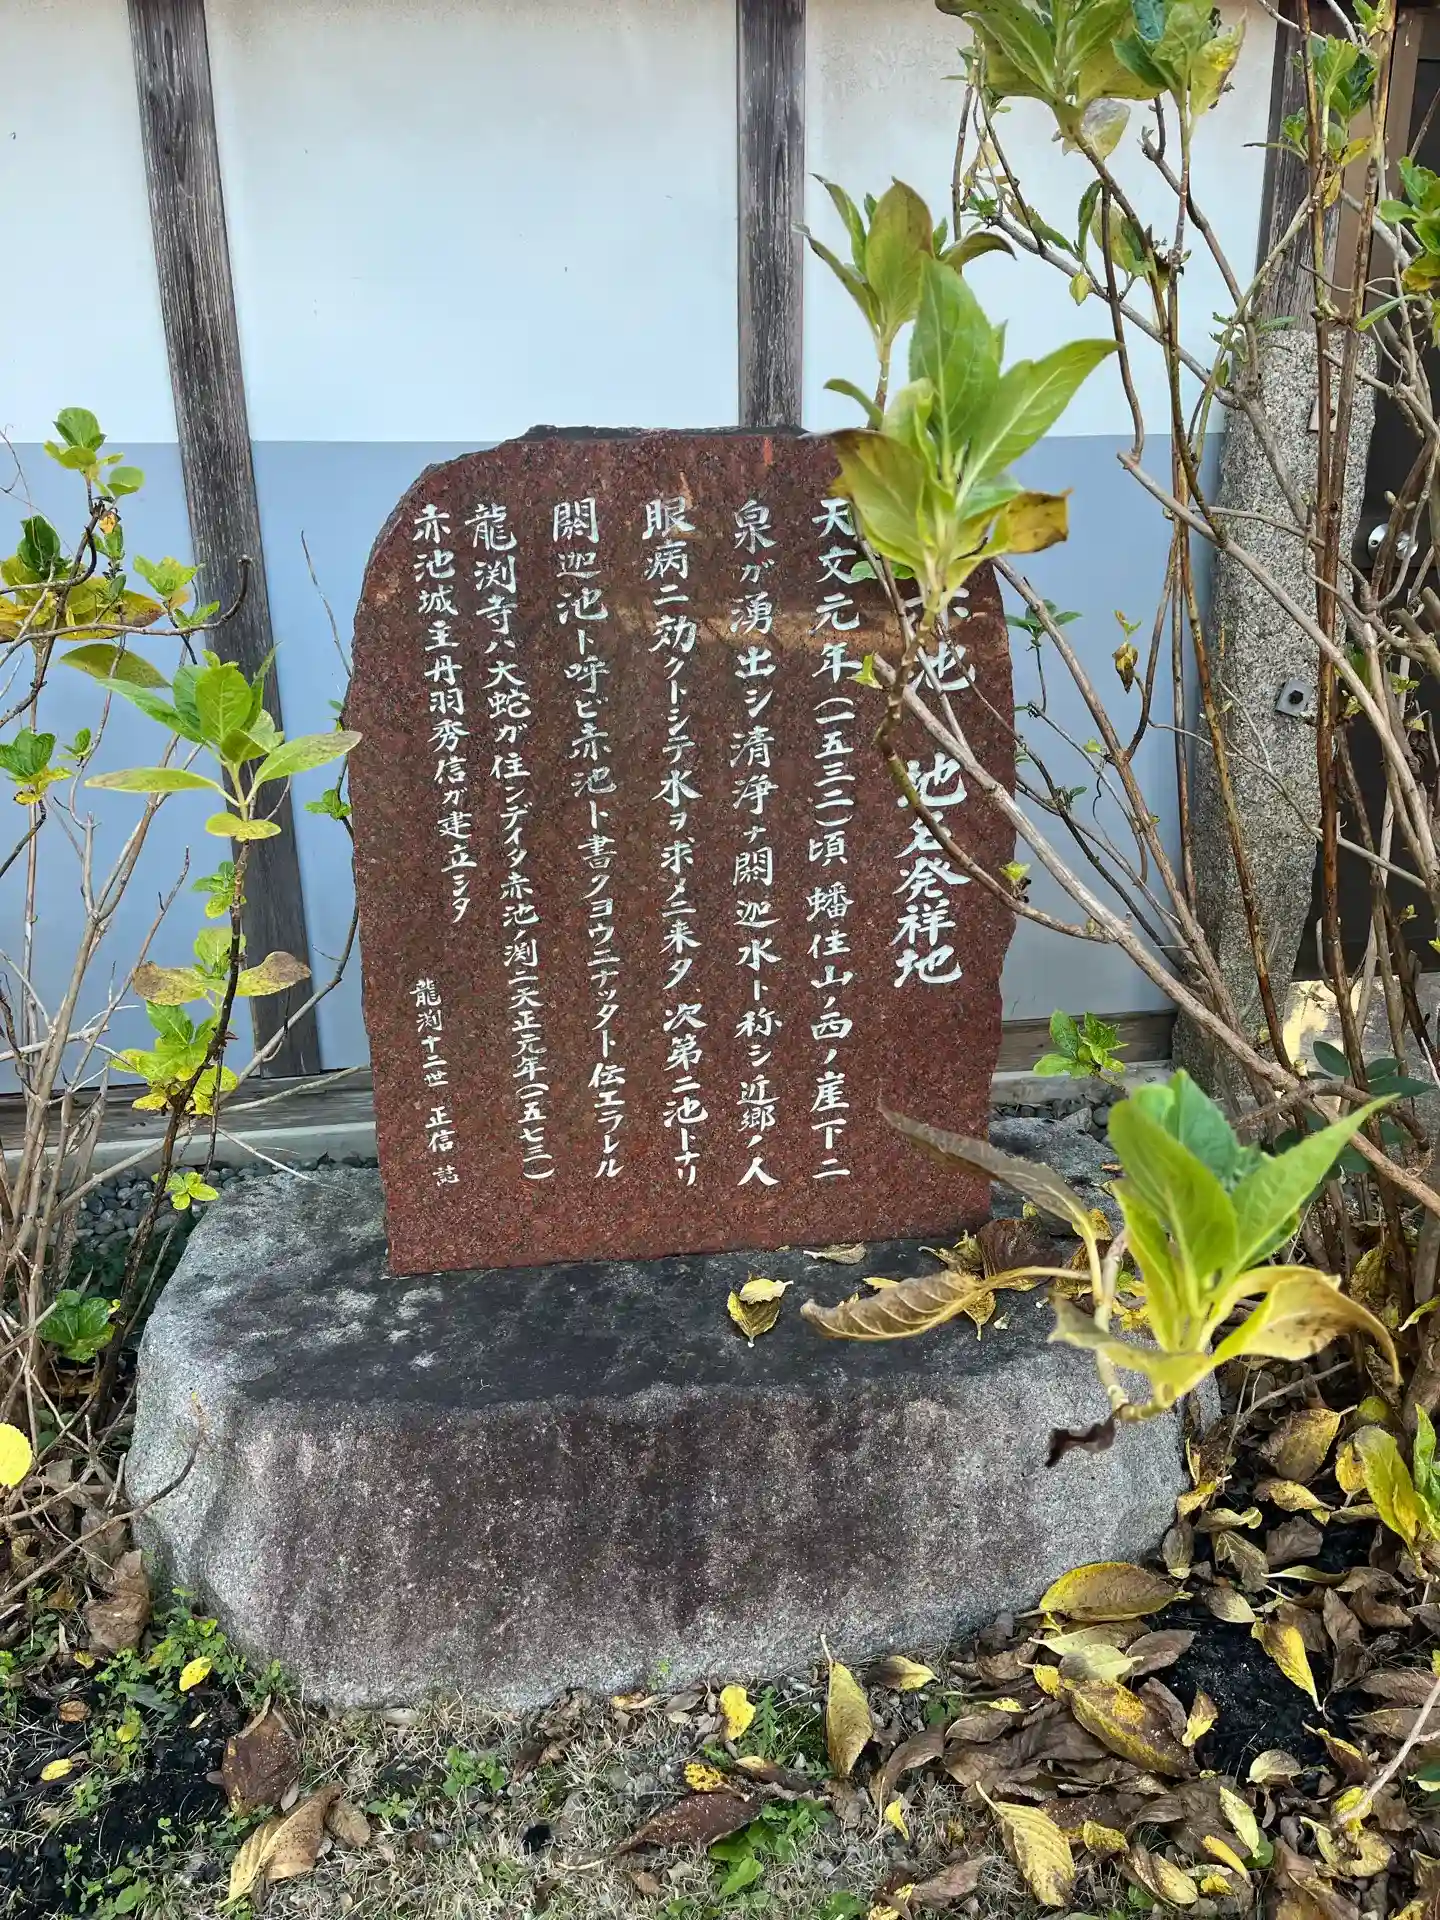 赤池 地名発祥地
天文元年(一五三二)頃蟠住山ノ西ノ崖下ニ
泉が湧出シ清浄ナ閼迦水ト称シ近郷ノ人
眼病ニ効クトシテ水ヲ求メニ来タ次第ニ池トナリ
閼迦池ト呼ビ赤池ト書クヨウニナッタト伝エラレル
龍渕寺ハ大蛇ガ住ンデイタ赤池ノ渕ニ天正元年(一五七三)
赤池城主丹羽秀信ガ建立シタ
龍渕十二世 正信 誌